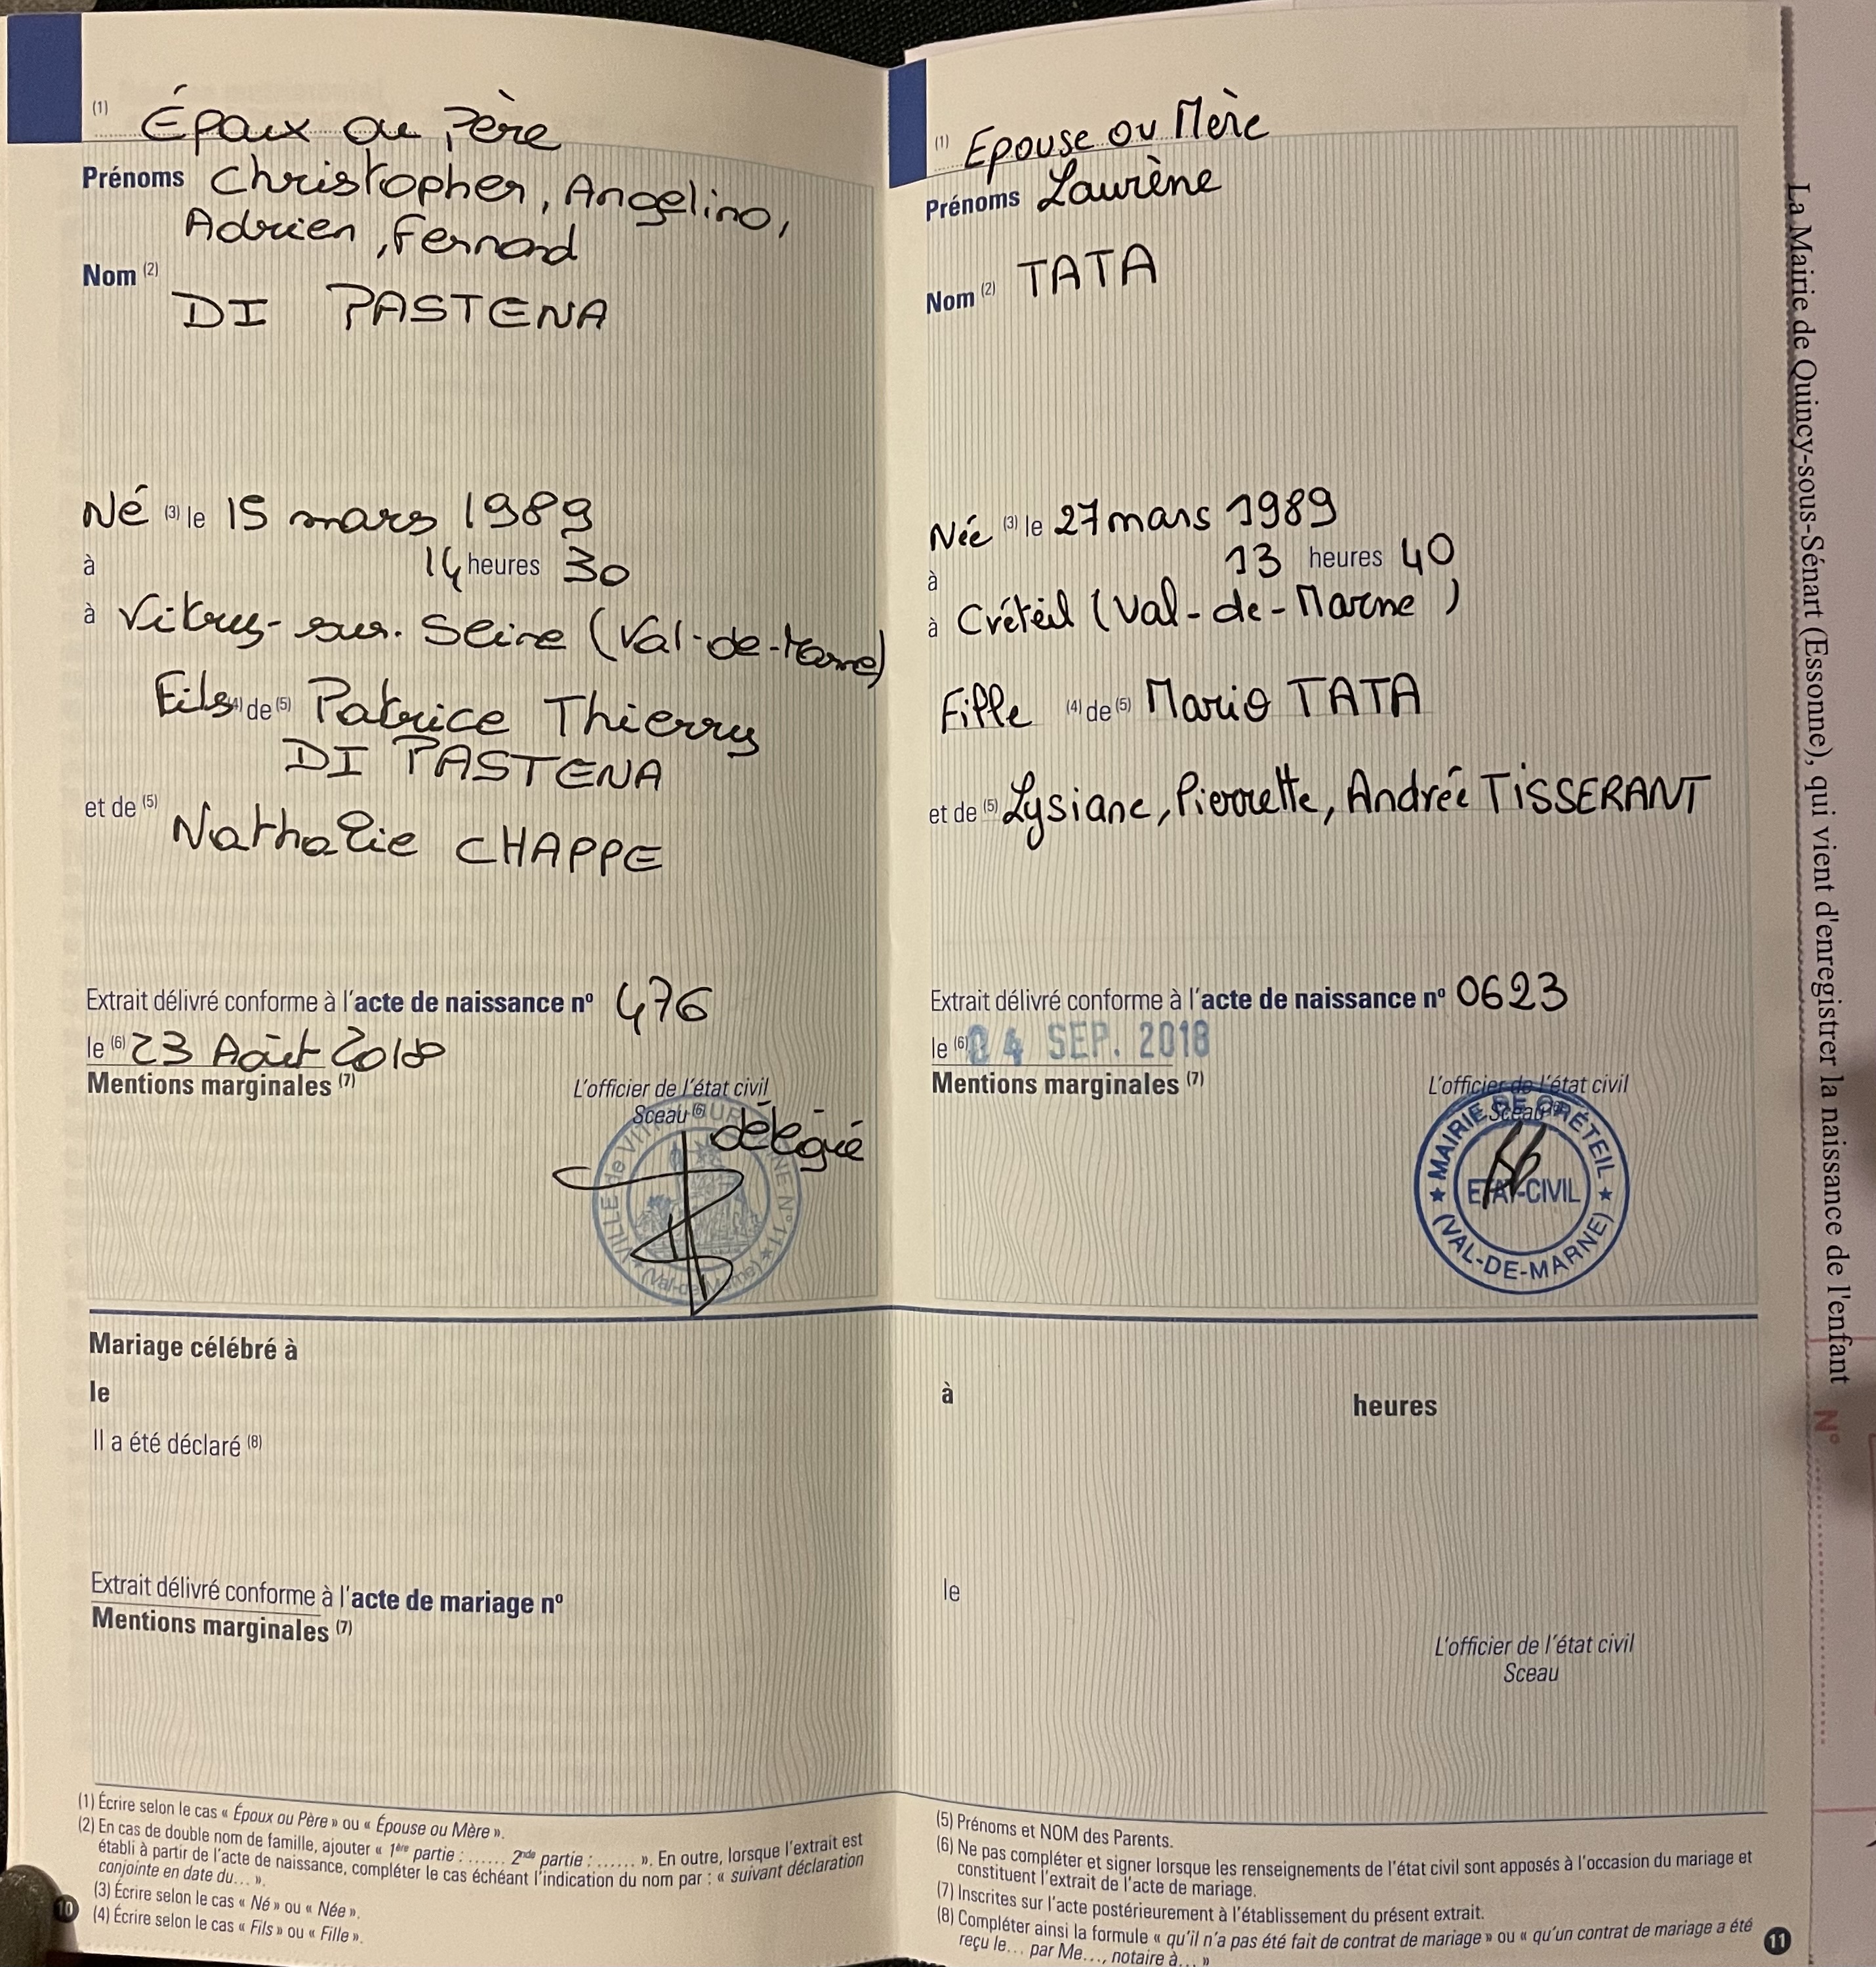 (1) Époux ou Père
Prénoms Christopher, Angelino,
Adrien, Fernand
Nom (2)
DI PASTENA
Né (3) le 15 mars 1989
à 14 heures 30
à Vitry-sur-Seine (Val-de-Marne)
Fils (4) de (5) Patrice Thierry
DI PASTENA
et de (5) Nathalie CHAPPE
Extrait délivré conforme à l'acte de naissance nº 476
le (6) 23 Août 2018
Mentions marginales (7)
L'officier de l'état civil
Sceau (6) délégué
VILLE de VITRY SUR SEINE N°11
(Val-de-Marne)
Mariage célébré à
le
Il a été déclaré (8)
Extrait délivré conforme à l'acte de mariage nº
Mentions marginales (7)
(1) Écrire selon le cas « Époux ou Père » ou « Épouse ou Mère ».
(2) En cas de double nom de famille, ajouter « 1ère partie : ...... 2nde partie : ...... ». En outre, lorsque l'extrait est
établi à partir de l'acte de naissance, compléter le cas échéant l'indication du nom par : « suivant déclaration
conjointe en date du... ».
(3) Écrire selon le cas « Né » ou « Née ».
(4) Écrire selon le cas « Fils » ou « Fille ».
10
(1) Epouse ou Mère
Prénoms Laurène
Nom (2) TATA
Née (3) le 27 mars 1989
à 13 heures 40
à Créteil (Val-de-Marne)
Fille (4) de (5) Mario TATA
et de (5) Lysiane, Pierrette, Andrée TISSERANT
Extrait délivré conforme à l'acte de naissance nº 0623
le (6) 04 SEP. 2018
Mentions marginales (7)
L'officier de l'état civil
Sceau (6)
MAIRIE DE CRÉTEIL
ETAT-CIVIL
(VAL-DE-MARNE)
à heures
le
L'officier de l'état civil
Sceau
(5) Prénoms et NOM des Parents.
(6) Ne pas compléter et signer lorsque les renseignements de l'état civil sont apposés à l'occasion du mariage et
constituent l'extrait de l'acte de mariage.
(7) Inscrites sur l'acte postérieurement à l'établissement du présent extrait.
(8) Compléter ainsi la formule « qu'il n'a pas été fait de contrat de mariage » ou « qu'un contrat de mariage a été
reçu le... par Me..., notaire à... »
11
La Mairie de Quincy-sous-Sénart (Essonne), qui vient d'enregistrer la naissance de l'enfant
N°